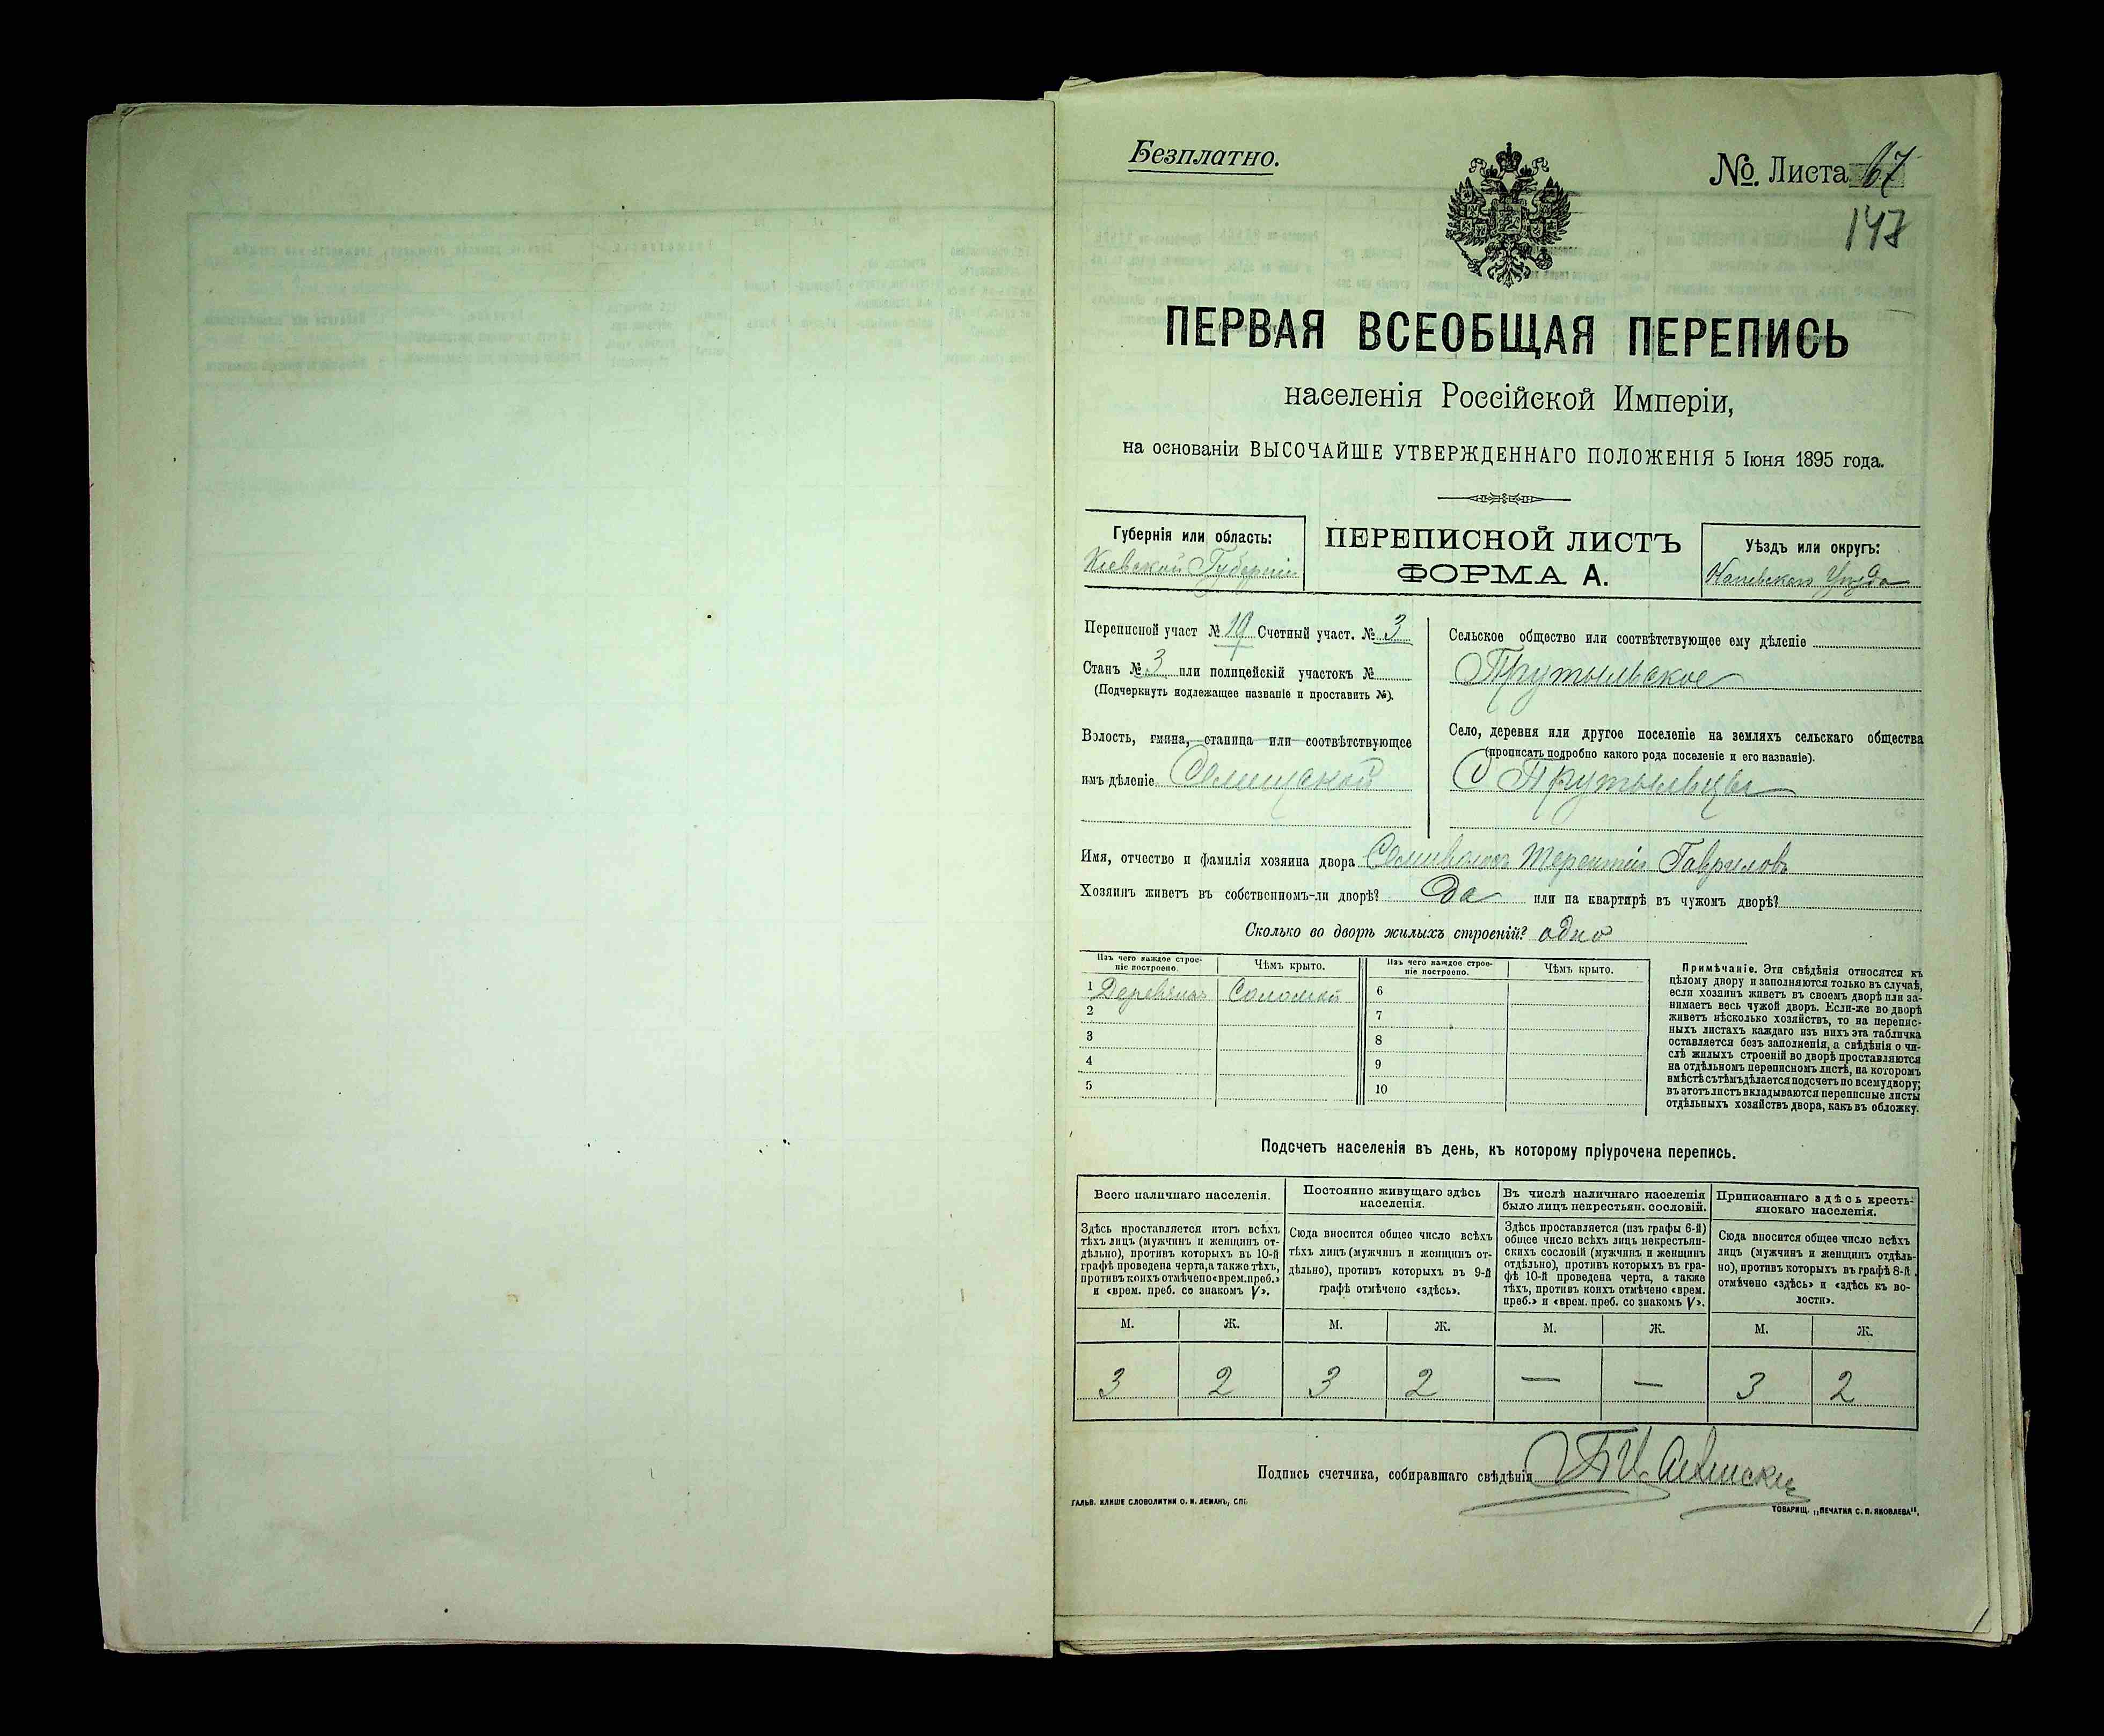 Безплатно.
№. Листа 67
147
ПЕРВАЯ ВСЕОБЩАЯ ПЕРЕПИСЬ
населенія Россійской Имперіи,
на основаніи ВЫСОЧАЙШЕ УТВЕРЖДЕННАГО ПОЛОЖЕНІЯ 5 Іюня 1895 года.
Губернія или область:
Кіевской Губерніи
ПЕРЕПИСНОЙ ЛИСТЪ
ФОРМА А.
Уѣздъ или округъ:
Каневскаго Уѣзда
Переписной участ № 19 Счетный участ. № 3
Станъ № 3 или полицейскій участокъ №
(Подчеркнуть подлежащее названіе и проставить №).
Волость, гмина, станица или соотвѣтствующее
имъ дѣленіе
Сельское общество или соотвѣтствующее ему дѣленіе
Прутыльское
Село, деревня или другое поселеніе на земляхъ сельскаго общества
(прописать подробно какого рода поселеніе и его названіе).
С Прутыльцы
Имя, отчество и фамилія хозяина двора Терентій Гавриловъ
Хозяинъ живетъ въ собственномъ-ли дворѣ? Да или на квартирѣ въ чужомъ дворѣ?
Сколько во дворѣ жилыхъ строеній? одно
Изъ чего каждое строе-
ніе построено.
Чѣмъ крыто.
Изъ чего каждое строе-
ніе построено.
Чѣмъ крыто.
1 Деревянъ Соломой 6
2 7
3 8
4 9
5 10
Примѣчаніе. Эти свѣдѣнія относятся къ
цѣлому двору и заполняются только въ случаѣ,
если хозяинъ живетъ въ своемъ дворѣ или за-
нимаетъ весь чужой дворъ. Если-же во дворѣ
живетъ нѣсколько хозяйствъ, то на перепис-
ныхъ листахъ каждаго изъ нихъ эта табличка
оставляется безъ заполненія, а свѣдѣнія о чи-
слѣ жилыхъ строеній во дворѣ проставляются
на отдѣльномъ переписномъ листѣ, на которомъ
вмѣстѣ съ тѣмъ дѣлается подсчетъ по всему двору;
въ этотъ листъ вкладываются переписные листы
отдѣльныхъ хозяйствъ двора, какъ въ обложку.
Подсчетъ населенія въ день, къ которому пріурочена перепись.
Всего наличнаго населенія.
Здѣсь проставляется итогъ всѣхъ
тѣхъ лицъ (мужчинъ и женщинъ от-
дѣльно), противъ которыхъ въ 10-й
графѣ проведена черта, а также тѣхъ,
противъ коихъ отмѣчено «врем. преб.»
и «врем. преб. со знакомъ V».
Постоянно живущаго здѣсь
населенія.
Сюда вносится общее число всѣхъ
тѣхъ лицъ (мужчинъ и женщинъ от-
дѣльно), противъ которыхъ въ 9-й
графѣ отмѣчено «здѣсь».
Въ числѣ наличнаго населенія
было лицъ некрестьян. сословій.
Здѣсь проставляется (изъ графы 6-й)
общее число всѣхъ лицъ некрестьян-
скихъ сословій (мужчинъ и женщинъ
отдѣльно), противъ которыхъ въ гра-
фѣ 10-й проведена черта, а также
тѣхъ, противъ коихъ отмѣчено «врем.
преб.» и «врем. преб. со знакомъ V».
Приписаннаго здѣсь кресть-
янскаго населенія.
Сюда вносится общее число всѣхъ
лицъ (мужчинъ и женщинъ отдѣль-
но), противъ которыхъ въ графѣ 8-й
отмѣчено «здѣсь» и «здѣсь къ во-
лости».
М. Ж. М. Ж. М. Ж. М. Ж.
3 2 3 2 — — 3 2
Подпись счетчика, собиравшаго свѣдѣнія
ГАЛЬВ. КЛИШЕ СЛОВОЛИТНИ О. И. ЛЕМАНЪ, СПБ.
ТОВАРИЩ. „ПЕЧАТНЯ С. П. ЯКОВЛЕВА".